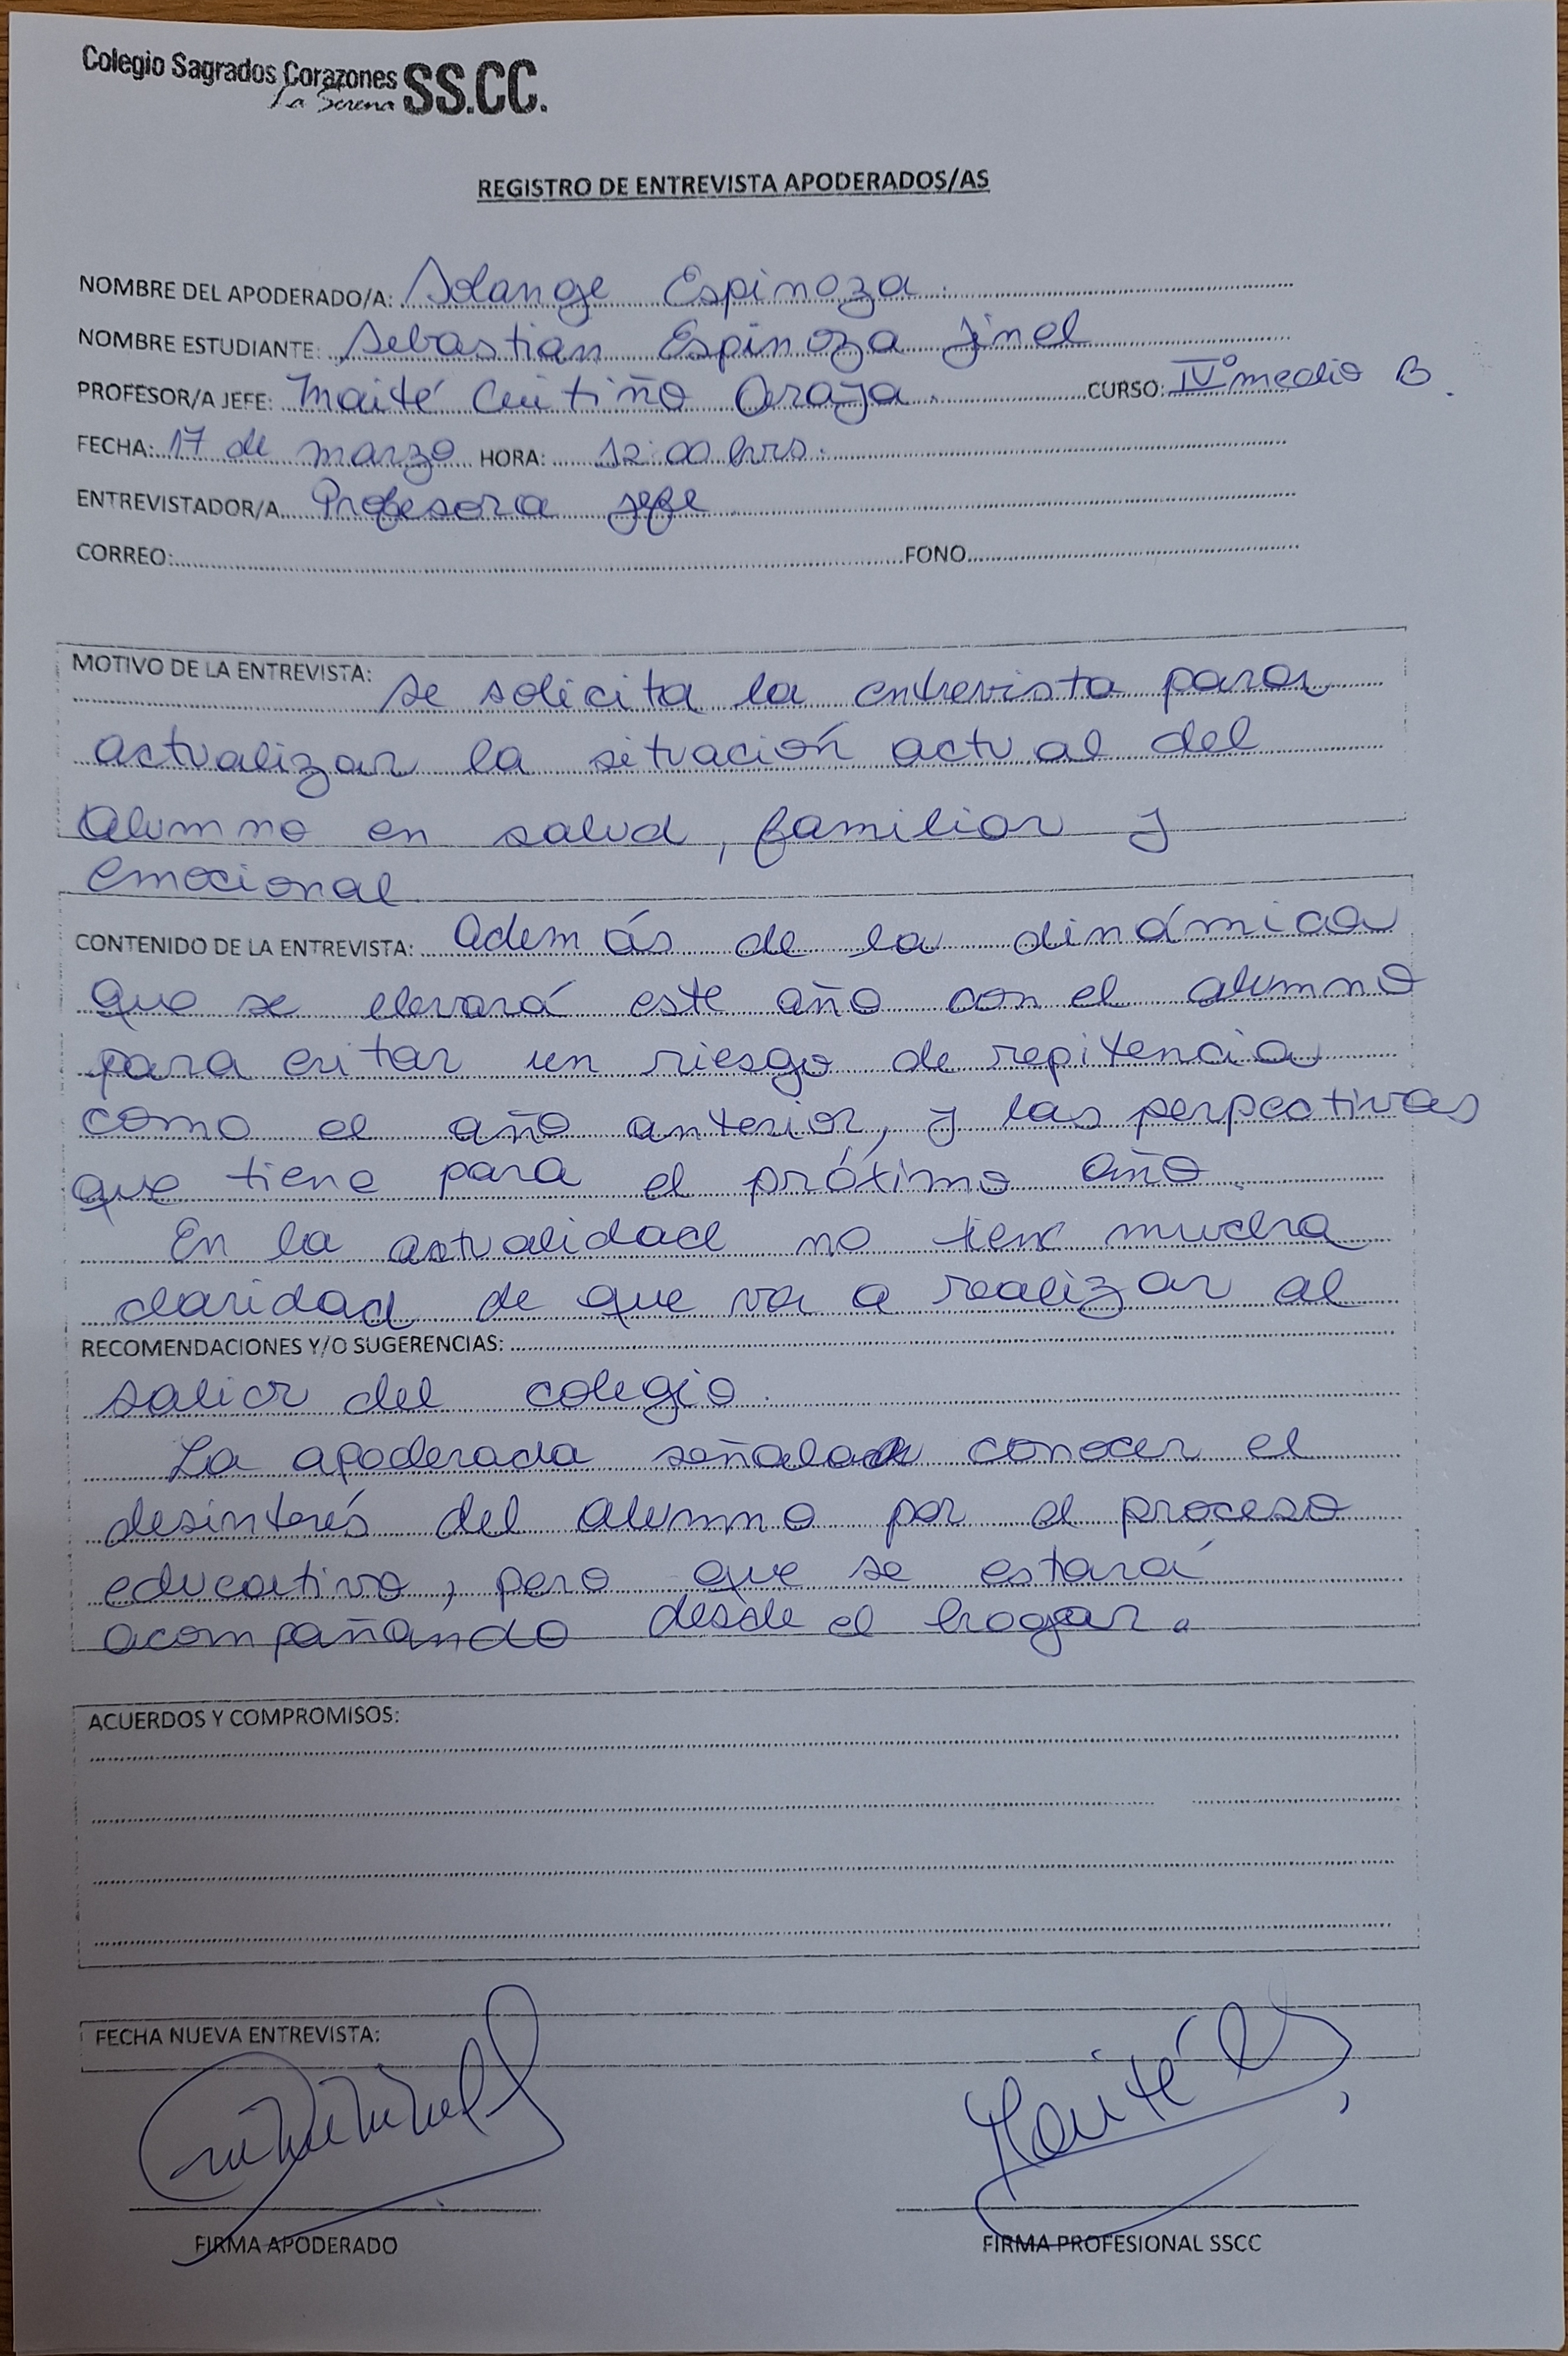 Colegio Sagrados Corazones SS.CC.
La Serena
REGISTRO DE ENTREVISTA APODERADOS/AS
NOMBRE DEL APODERADO/A: Solange Espinoza.
NOMBRE ESTUDIANTE: Sebastian Espinoza Jinel
PROFESOR/A JEFE: Maité Cuitiño Araya. CURSO: IVº medio B.
FECHA: 17 de marzo HORA: 12:00 hrs.
ENTREVISTADOR/A Profesora jefe
CORREO: FONO
MOTIVO DE LA ENTREVISTA: Se solicita la entrevista para
actualizar la situación actual del
alumno en salud, familiar y
emocional
CONTENIDO DE LA ENTREVISTA: Además de la dinámica
que se llevará este año con el alumno
para evitar un riesgo de repitencia
como el año anterior, y las perpectivas
que tiene para el próximo año.
En la actualidad no tiene mucha
claridad de que va a realizar al
RECOMENDACIONES Y/O SUGERENCIAS:
salir del colegio.
La apoderada señala conocer el
desinterés del alumno por el proceso
educativo, pero que se estará
acompañando desde el hogar.
ACUERDOS Y COMPROMISOS:
FECHA NUEVA ENTREVISTA:
Maité
FIRMA APODERADO FIRMA PROFESIONAL SSCC